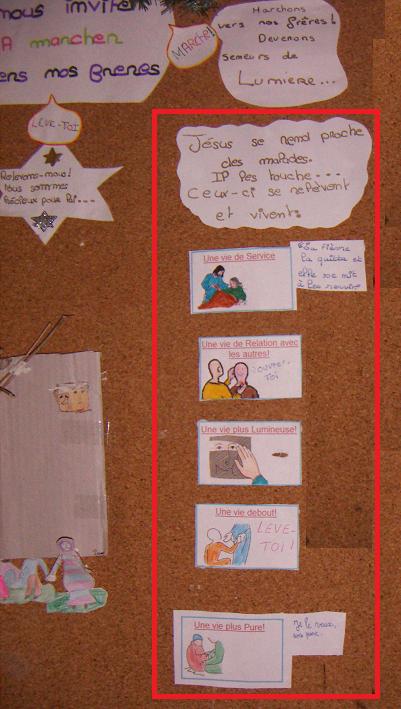 nous invite
A marcher
ers nos frères
MARCHE!
Marchons
vers nos frères!
Devenons
semeurs de
Lumière...
LEVE-TOI
Relevons-nous!
Nous sommes
précieux pour Lui...
Jésus se rend proche
des malades.
Il les touche...
Ceux-ci se relèvent
et vivent:
Une vie de Service
"La fièvre
la quitta et
elle se mit
à les servir
Une vie de Relation avec
les autres!
OUVRE-
TOI
Une vie plus Lumineuse!
Une vie debout!
LEVE-
TOI!
Une vie plus Pure!
Je le veux,
sois pur.